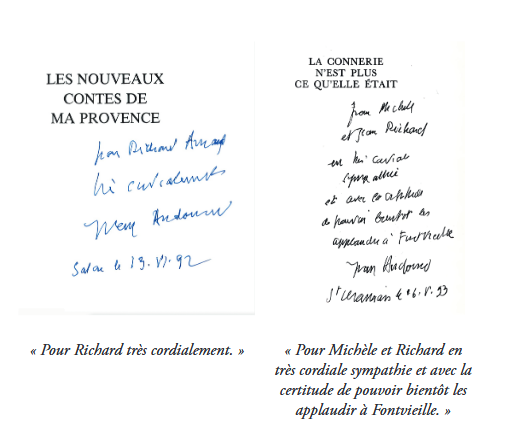 LES NOUVEAUX
CONTES DE
MA PROVENCE
pour Richard Arnaud
très cordialement
Yvan Audouard
Salon le 13.VI.92
« Pour Richard très cordialement. »
LA CONNERIE
N'EST PLUS
CE QU'ELLE ÉTAIT
pour Michèle
et pour Richard
en très cordiale
sympathie
et avec la certitude
de pouvoir bientôt les
applaudir à Fontvieille
Yvan Audouard
« Pour Michèle et Richard en
très cordiale sympathie et avec la
certitude de pouvoir bientôt les
applaudir à Fontvieille. »